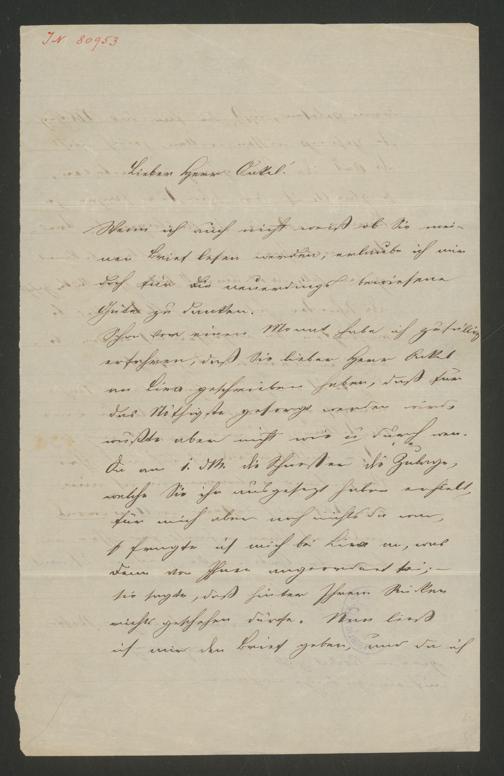 JN 80953
Lieber Herr Onkel!
Wenn ich auch nicht weiß ob Sie mei-
nen Brief lesen werden, erlaube ich mir
doch für die neuerdings bewiesene
Güte zu danken.
Schon vor einem Monat habe ich zufällig
erfahren, daß Sie lieber Herr Onkel
an Lina geschrieben haben, daß für
das Nöthigste gesorgt werden wird,
wußte aber nicht wie u durch wen.
Da am 1. dM. die Schwester die Zulage,
welche Sie ihr ausgesetzt haben erhielt,
für mich aber noch nichts da war,
so fragte ich mich bei Lina an, was
denn von Ihnen angeordnet sei; –
sie sagte, daß hinter Ihrem Rücken
nichts geschehen dürfe. Nun ließ
ich mir den Brief geben, und da ich